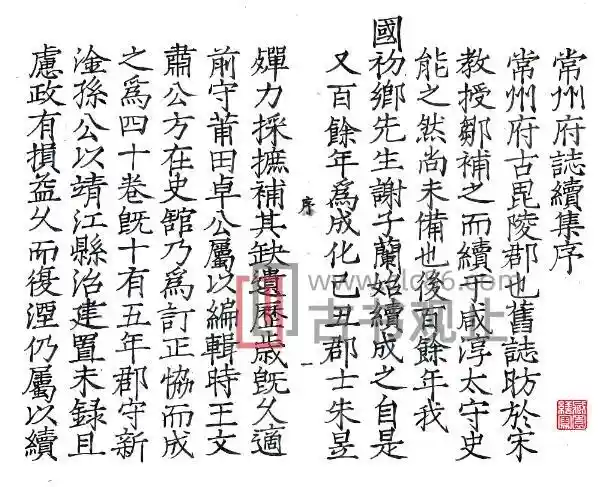 常州府誌續集序
常州府古毘陵郡也舊誌昉於宋
教授鄒補之而續于咸淳太守史
能之然尚未備也後百餘年我
國初鄉先生謝子蘭始續成之自是
又百餘年爲成化己丑郡士朱昱
序
一
殫力採摭補其缺遺歷歲既久適
前守莆田卓公屬以編輯時王文
肅公方在史館乃爲訂正協而成
之爲四十卷既十有五年郡守新
淦孫公以靖江縣治建置未録且
慮政有損益久而復湮仍屬以續
www.gc66.com
古书观止